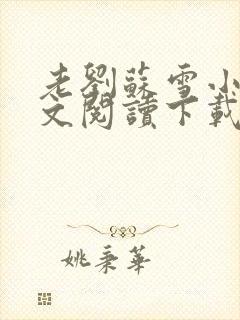 老劉蘇雪小
文閱讀下載
姚秉華